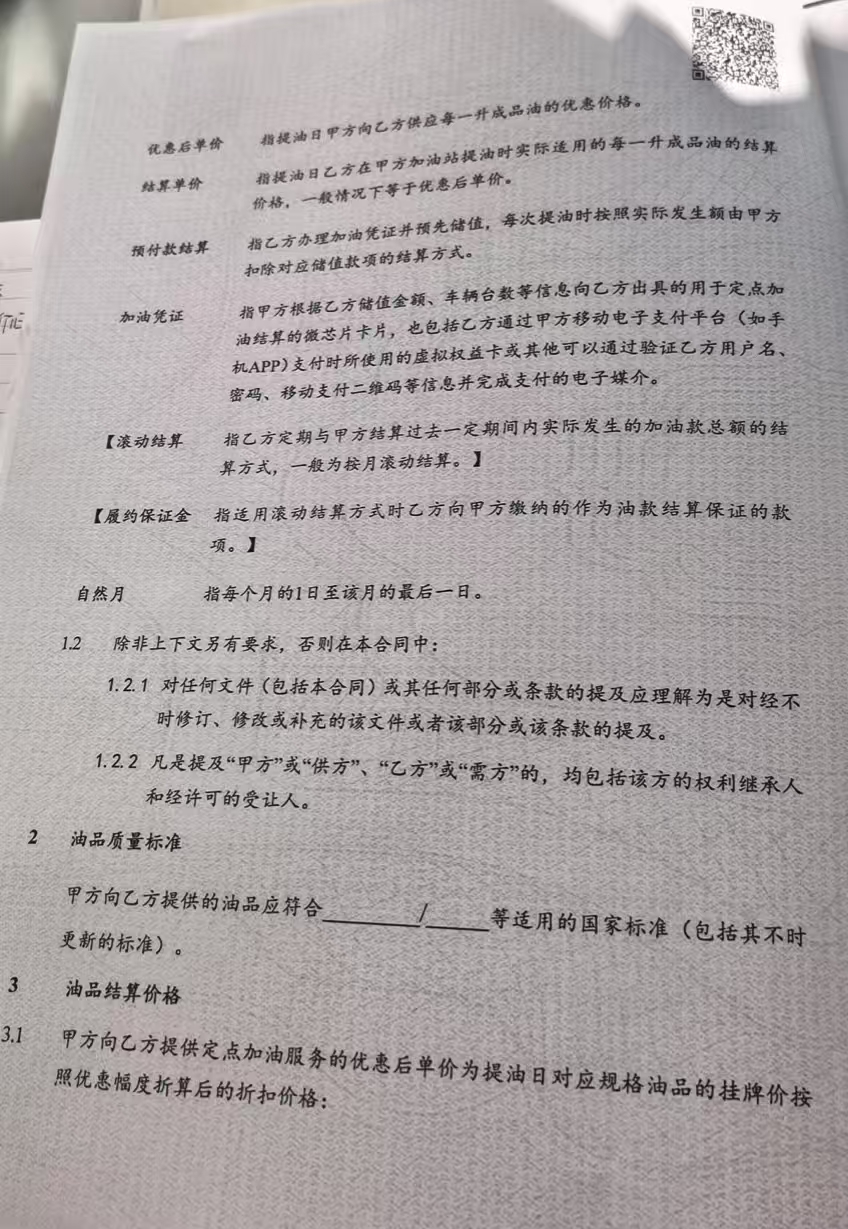 优惠后单价 指提油日甲方向乙方供应每一升成品油的优惠价格。
结算单价 指提油日乙方在甲方加油站提油时实际适用的每一升成品油的结算
价格，一般情况下等于优惠后单价。
预付款结算 指乙方办理加油凭证并预先储值，每次提油时按照实际发生额由甲方
扣除对应储值款项的结算方式。
加油凭证 指甲方根据乙方储值金额、车辆台数等信息向乙方出具的用于定点加
油结算的微芯片卡片，也包括乙方通过甲方移动电子支付平台（如手
机APP)支付时所使用的虚拟权益卡或其他可以通过验证乙方用户名、
密码、移动支付二维码等信息并完成支付的电子媒介。
【滚动结算 指乙方定期与甲方结算过去一定期间内实际发生的加油款总额的结
算方式，一般为按月滚动结算。】
【履约保证金 指适用滚动结算方式时乙方向甲方缴纳的作为油款结算保证的款
项。】
自然月 指每个月的1日至该月的最后一日。
1.2 除非上下文另有要求，否则在本合同中：
1.2.1 对任何文件（包括本合同）或其任何部分或条款的提及应理解为是对经不
时修订、修改或补充的该文件或者该部分或该条款的提及。
1.2.2 凡是提及“甲方”或“供方”、“乙方”或“需方”的，均包括该方的权利继承人
和经许可的受让人。
2 油品质量标准
甲方向乙方提供的油品应符合______/____等适用的国家标准（包括其不时
更新的标准）。
3 油品结算价格
3.1 甲方向乙方提供定点加油服务的优惠后单价为提油日对应规格油品的挂牌价按
照优惠幅度折算后的折扣价格：